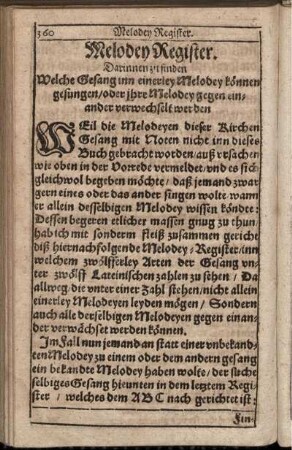 360 Melodey Register.
Melodey Register.
Darinnen zu finden
Welche Gesang inn einerley Melodey können
gesungen/oder jhre Melodey gegen ein-
ander verwechselt werden
WEil die Melodeyen dieser Kirchen
Gesang mit Noten nicht inn dieses
Buch gebracht worden/auß vrsachen
wie oben in der Vorrede vermeldet/vnd es sich
gleichwol begeben möchte/ daß jemand zwar
gern eines oder das ander singen wolte wann
er allein desselbigen Melodey wissen köndte:
Dessen begeren etlicher massen gnug zu thun
hab ich mit sonderm fleiß zusammen gericht
diß hiernachsolgende Melodey-Register/inn
welchem zwölfferley Arten der Gesang vn-
ter zwölff Lateinischen zahlen zu sehen/ Da
allweg die vnter einer Zahl stehen/nicht allein
einerley Melodeyen leyden mögen/ Sondern
auch alle derselbigen Melodeyen gegen einan-
der verwächset werden können.
Im Fall nun jemand an statt einer vnbekand-
ten Melodey zu einem oder dem andern gesang
ein bekandte Melodey haben wolte/ der suche
selbiges Gesang hieunten in dem letztem Regi-
ster / welches dem A B C nach gerichtet ist:
Fin-